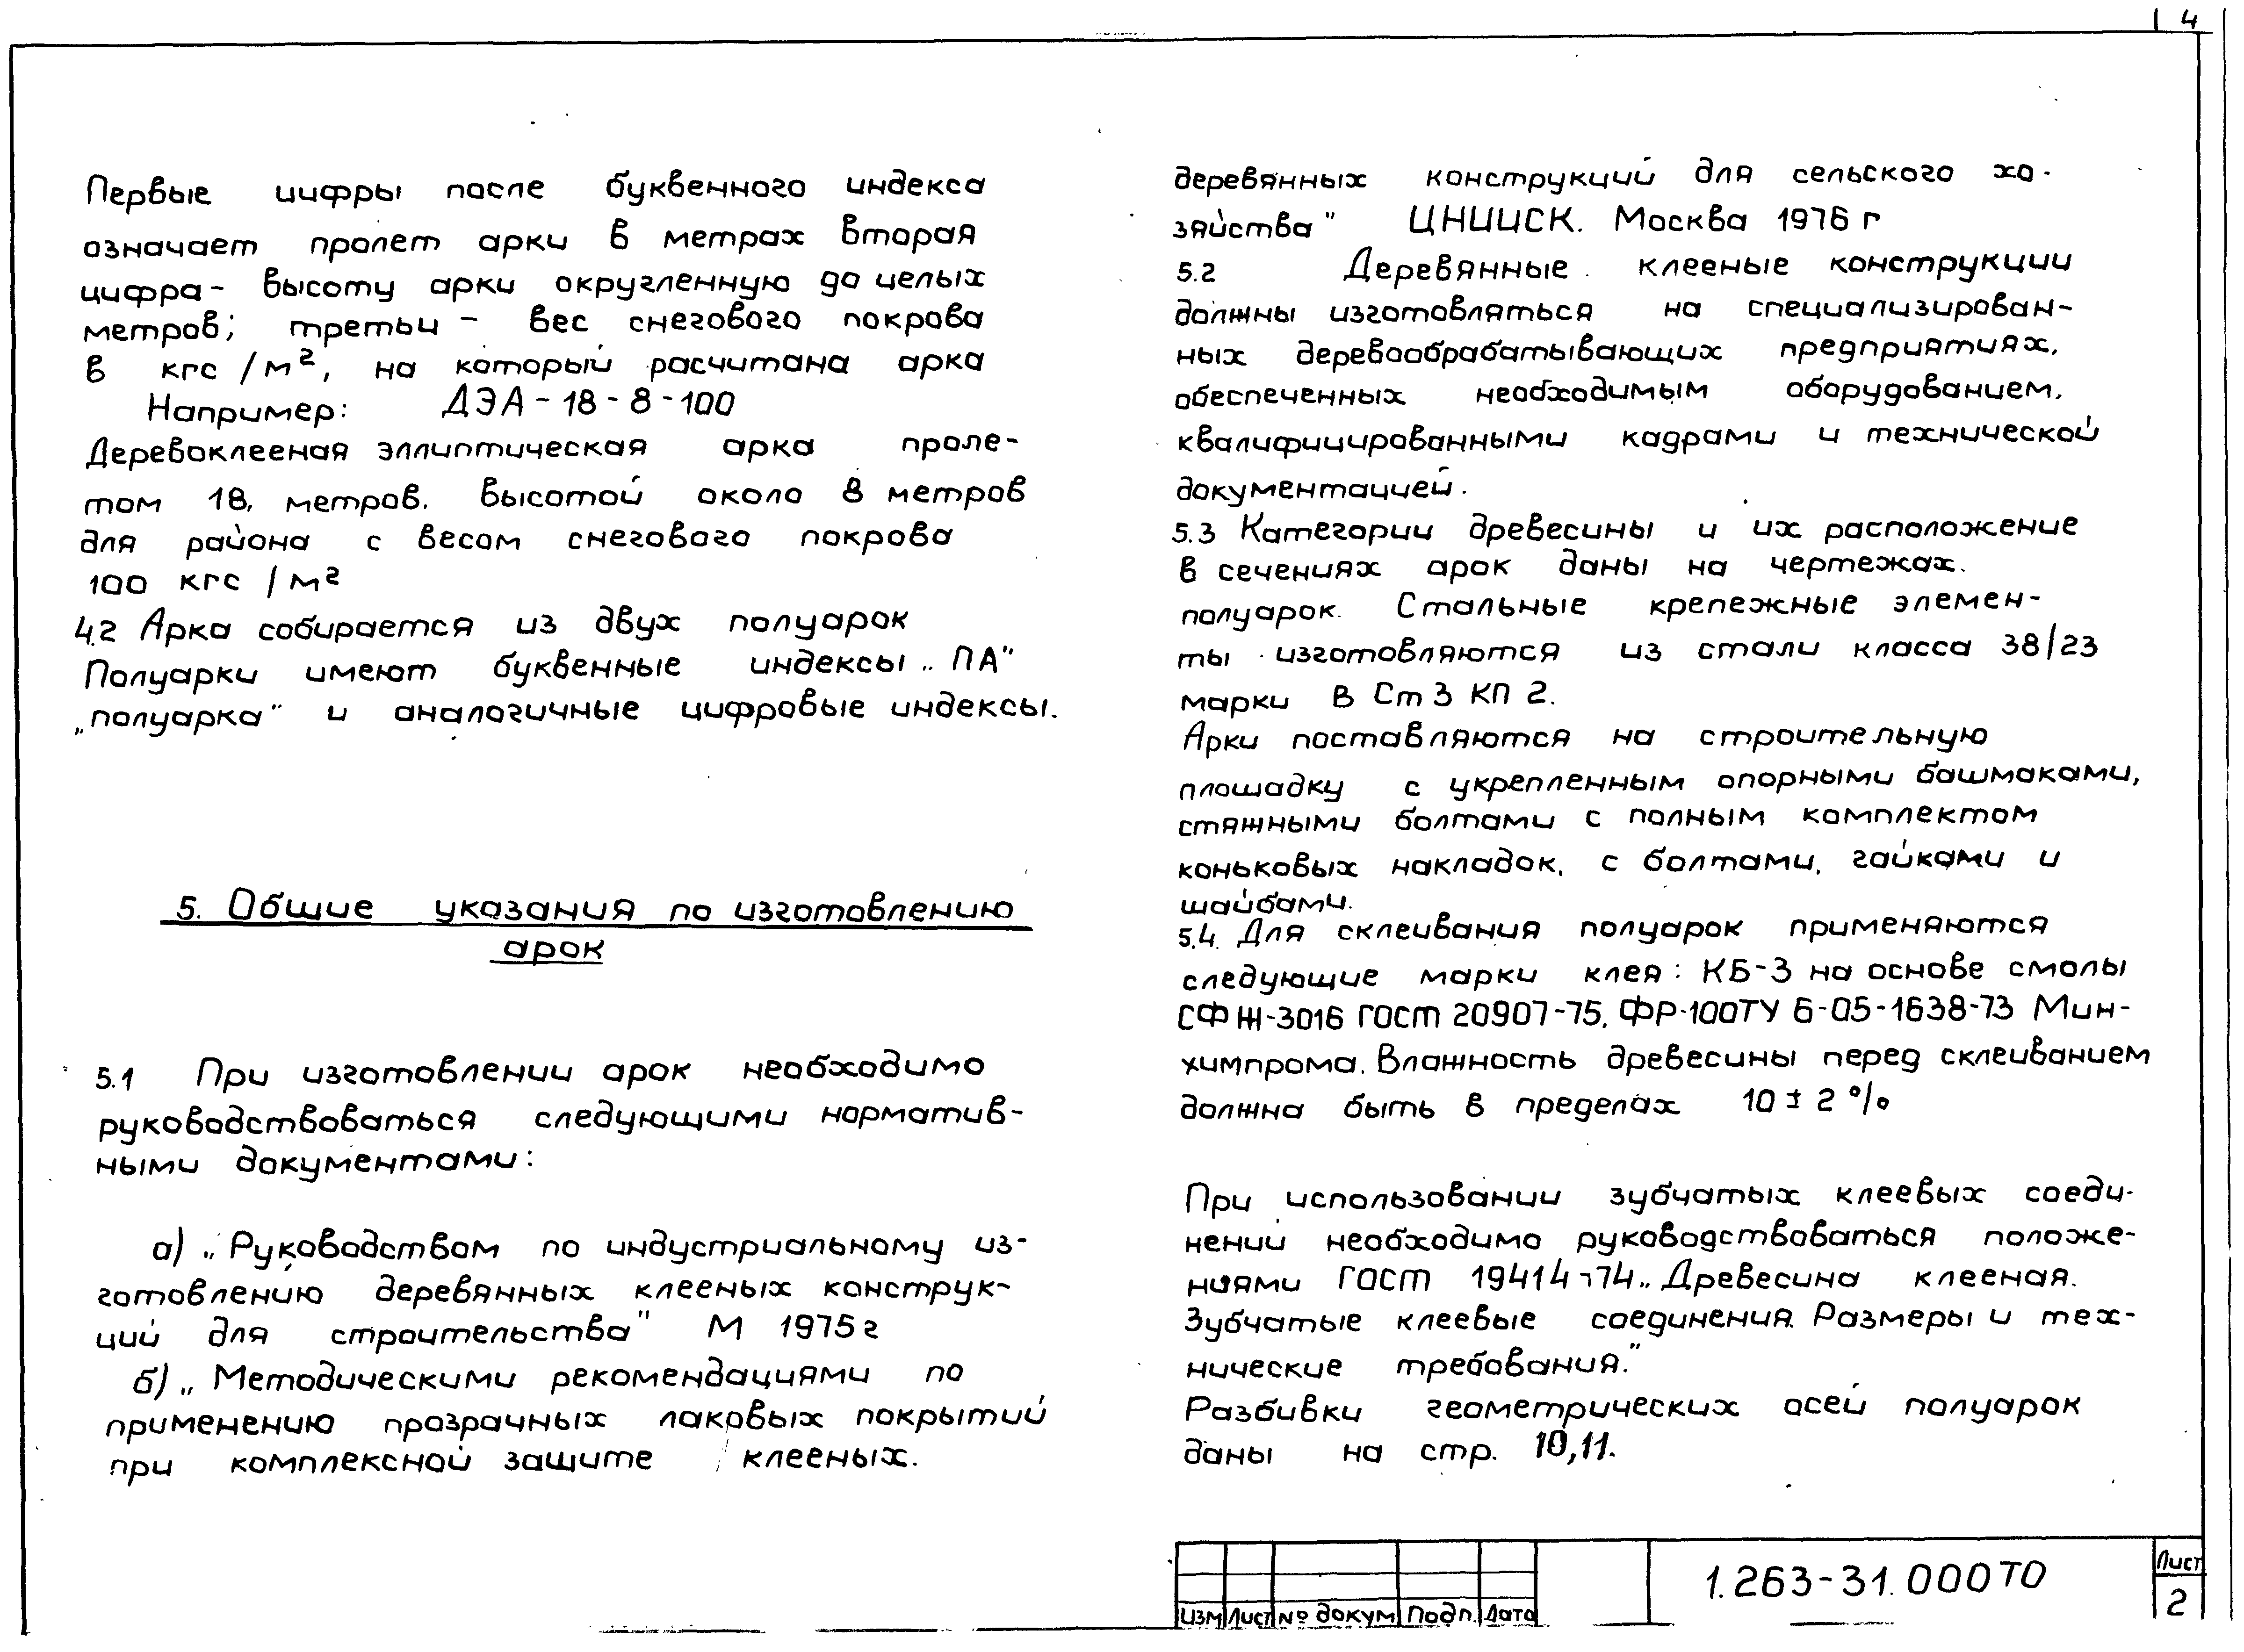 4
Первые цифры после буквенного индекса
означает пролет арки в метрах вторая
цифра – высоту арки округленную до целых
метров; третьи – вес снегового покрова
в кгс/м², на который расчитана арка
Например: ДЭА-18-8-100
Деревоклееная эллиптическая арка проле-
том 18, метров. высотой около 8 метров
для района с весом снегового покрова
100 кгс/м²
4.2 Арка собирается из двух полуарок
Полуарки имеют буквенные индексы „ПА"
„полуарка" и аналогичные цифровые индексы.
5. Общие указания по изготовлению
арок
5.1 При изготовлении арок необходимо
руководствоваться следующими норматив-
ными документами:
а) „Руководством по индустриальному из-
готовлению деревянных клееных конструк-
ций для строительства" М 1975г
б) „Методическими рекомендациями по
применению прозрачных лаковых покрытий
при комплексной защите клееных.
деревянных конструкций для сельского хо-
зяйства" ЦНИИСК. Москва 1976 г
5.2 Деревянные клееные конструкции
должны изготовляться на специализирован-
ных деревообрабатывающих предприятиях,
обеспеченных необходимым оборудованием,
квалифицированными кадрами и технической
документацией.
5.3 Категории древесины и их расположение
в сечениях арок даны на чертежах.
полуарок. Стальные крепежные элемен-
ты изготовляются из стали класса 38/23
марки В Ст 3 КП 2.
Арки поставляются на строительную
площадку с укрепленным опорными башмаками,
стяжными болтами с полным комплектом
коньковых накладок, с болтами, гайками и
шайбами.
5.4. Для склеивания полуарок применяются
следующие марки клея: КБ-3 на основе смолы
СФЖ-3016 ГОСТ 20907-75, ФР-100ТУ 6-05-1638-73 Мин-
химпрома. Влажность древесины перед склеиванием
должна быть в пределах 10 ± 2 %
При использовании зубчатых клеевых соеди-
нений необходимо руководствоваться положе-
ниями ГОСТ 19414-74 „Древесина клееная.
Зубчатые клеевые соединения. Размеры и тех-
нические требования."
Разбивки геометрических осей полуарок
даны на стр. 10,11.
Изм Лист № докум Подп. Дата
1.263-31.000ТО
Лист
2